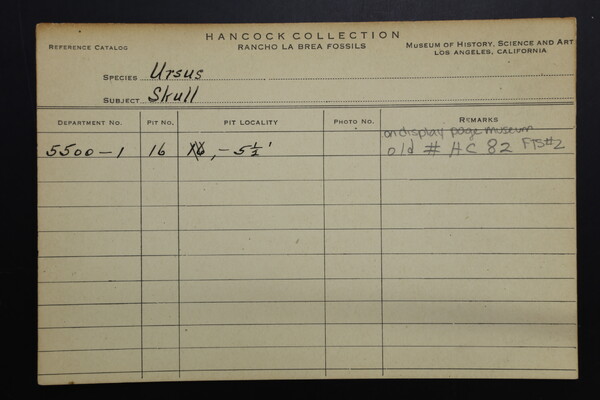 HANCOCK COLLECTION
REFERENCE CATALOG RANCHO LA BREA FOSSILS MUSEUM OF HISTORY, SCIENCE AND ART
LOS ANGELES, CALIFORNIA
SPECIES Ursus
SUBJECT Skull
DEPARTMENT NO. PIT NO. PIT LOCALITY PHOTO NO. REMARKS
on display page museum
5500-1 16 , -5½' old # HC 82 FTS#2